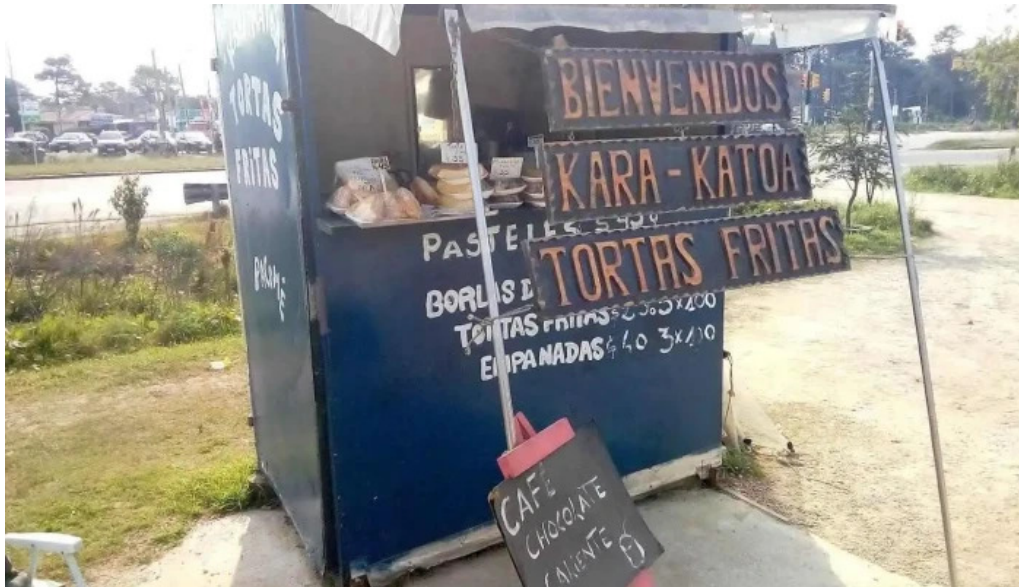 TORTAS
FRITAS
BIENVENIDOS
KARA-KATOA
TORTAS FRITAS
PASTELES
BORLAS D
TORTAS FRITAS 3x100
EMPANADAS $40 3x100
CAFÉ
CHOCOLATE
CALIENTE